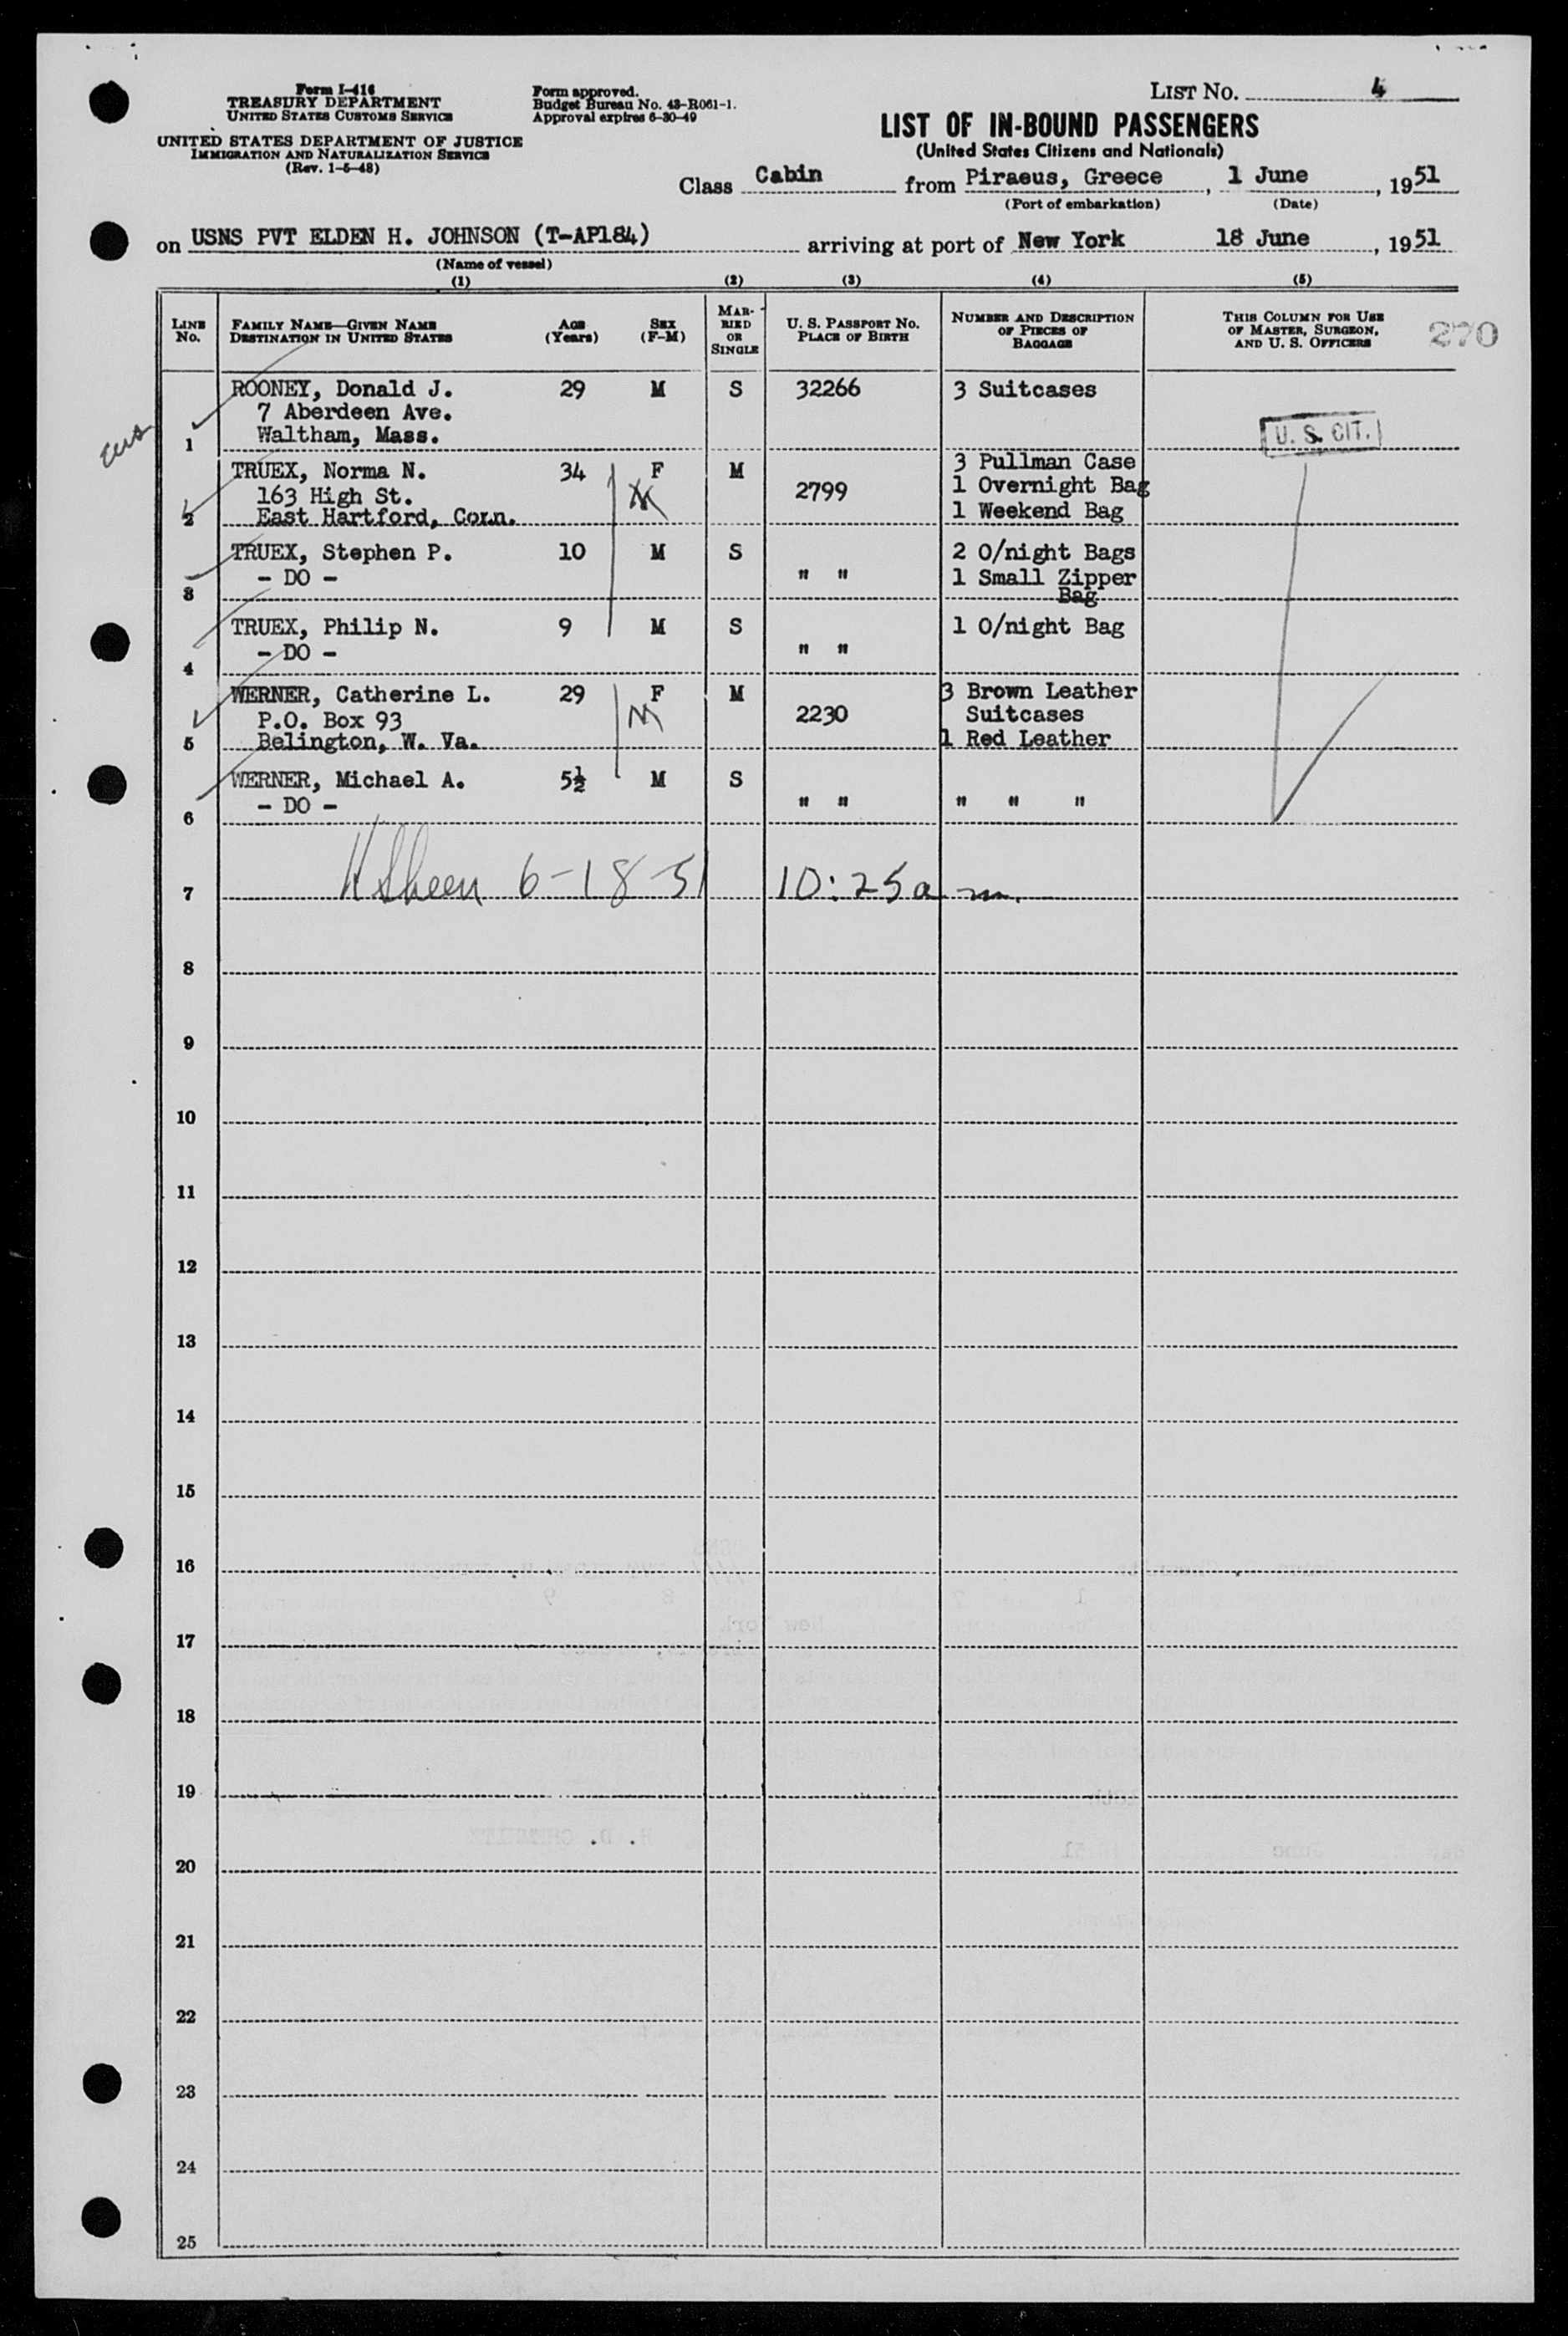 Form I-416
TREASURY DEPARTMENT
UNITED STATES CUSTOMS SERVICE
UNITED STATES DEPARTMENT OF JUSTICE
IMMIGRATION AND NATURALIZATION SERVICE
(Rev. 1-5-48)
Form approved.
Budget Bureau No. 43-R061-1.
Approval expires 6-30-49
LIST NO. 4
LIST OF IN-BOUND PASSENGERS
(United States Citizens and Nationals)
Class Cabin from Piraeus, Greece, 1 June, 1951
(Port of embarkation) (Date)
on USNS PVT ELDEN H. JOHNSON (T-AP184) arriving at port of New York 18 June, 1951
(Name of vessel)
(1) (2) (3) (4) (5)
LINE No. FAMILY NAME—GIVEN NAME DESTINATION IN UNITED STATES AGE (Years) SEX (F-M) MARRIED OR SINGLE U. S. PASSPORT NO. PLACE OF BIRTH NUMBER AND DESCRIPTION OF PIECES OF BAGGAGE THIS COLUMN FOR USE OF MASTER, SURGEON, AND U. S. OFFICERS 270
ROONEY, Donald J. 29 M S 32266 3 Suitcases
7 Aberdeen Ave.
1 Waltham, Mass. U. S. CIT.
TRUEX, Norma N. 34 F M 3 Pullman Case
163 High St. 2799 1 Overnight Bag
2 East Hartford, Conn. 1 Weekend Bag
TRUEX, Stephen P. 10 M S 2 O/night Bags
- DO - " " 1 Small Zipper
3 Bag
TRUEX, Philip N. 9 M S 1 O/night Bag
- DO - " "
4
WERNER, Catherine L. 29 F M 3 Brown Leather
P.O. Box 93 2230 Suitcases
5 Belington, W. Va. 1 Red Leather
WERNER, Michael A. 5½ M S
- DO - " " " " "
6
7 6-18-51 10:25 a m.
8
9
10
11
12
13
14
15
16
17
18
19
20
21
22
23
24
25